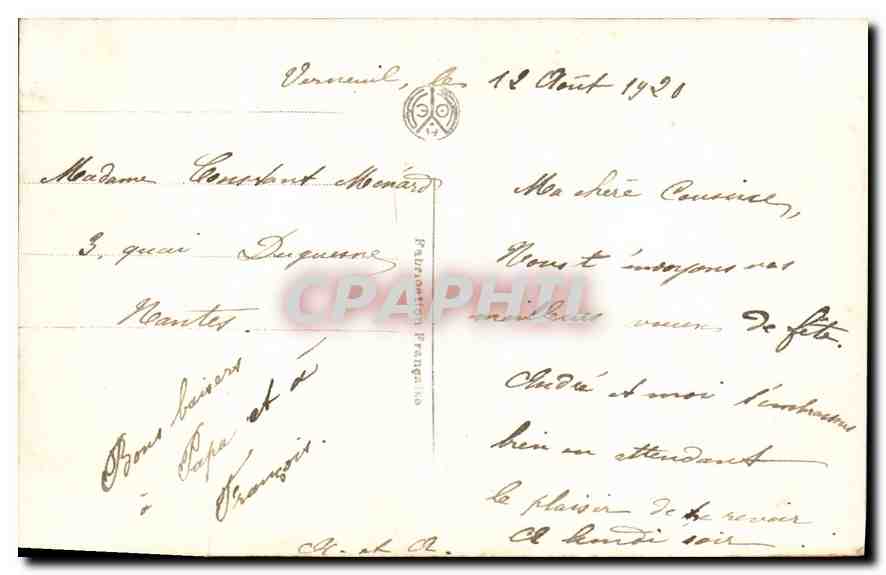 Verneuil, le 12 Août 1920
Madame Constant Ménard
3, quai Duquesne
Nantes.
Bons baisers
à Papa et à
François.
Fabrication Française
CPAPHIL
Ma chère Cousine,
Nous t'envoyons nos
meilleurs voeux de fête.
André et moi t'embrassons
bien en attendant
le plaisir de te revoir
A lundi soir.
et A.